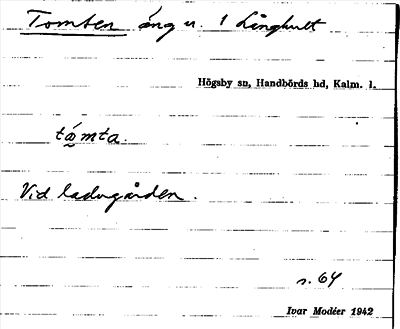 Tomten äng u. 1 Långhult
Högsby sn, Handbörds hd, Kalm. l.
tå̰mta.
Vid ladugården.
s. 64
Ivar Modéer 1942